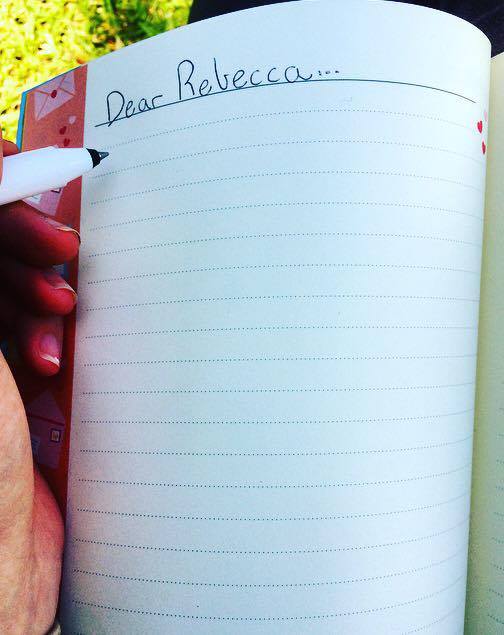 Dear Rebecca...